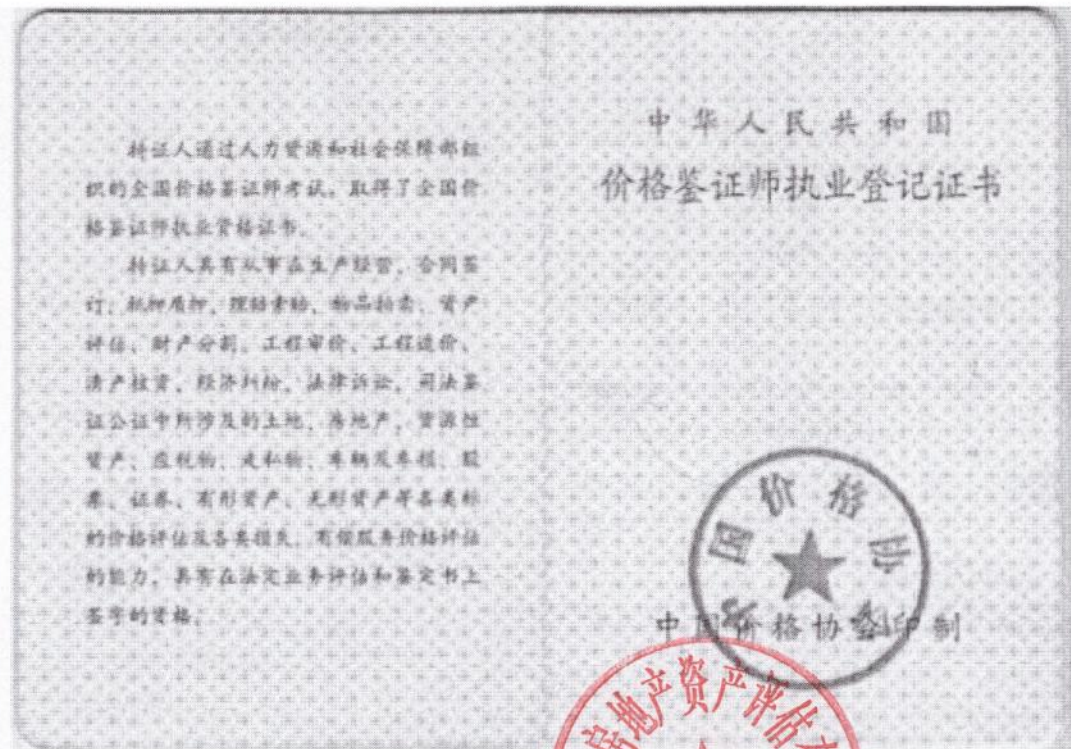 持证人通过人力资源和社会保障部组
织的全国价格鉴证师考试，取得了全国价
格鉴证师执业资格证书。
持证人具有从事在生产经营、合同签
订、抵押质押、理赔索赔、物品拍卖、资产
评估、财产分割、工程审价、工程造价、
清产核资、经济纠纷、法律诉讼、司法鉴
证公证中所涉及的土地、房地产、资源性
资产、应税物、走私物、车辆及车损、股
票、证券、有形资产、无形资产等各类标
的价格评估及各类损失、有偿服务价格评估
的能力，具有在法定业务评估和鉴定书上
签字的资格。
中华人民共和国
价格鉴证师执业登记证书
中国价格协会
中国价格协会印制
房地产资产评估